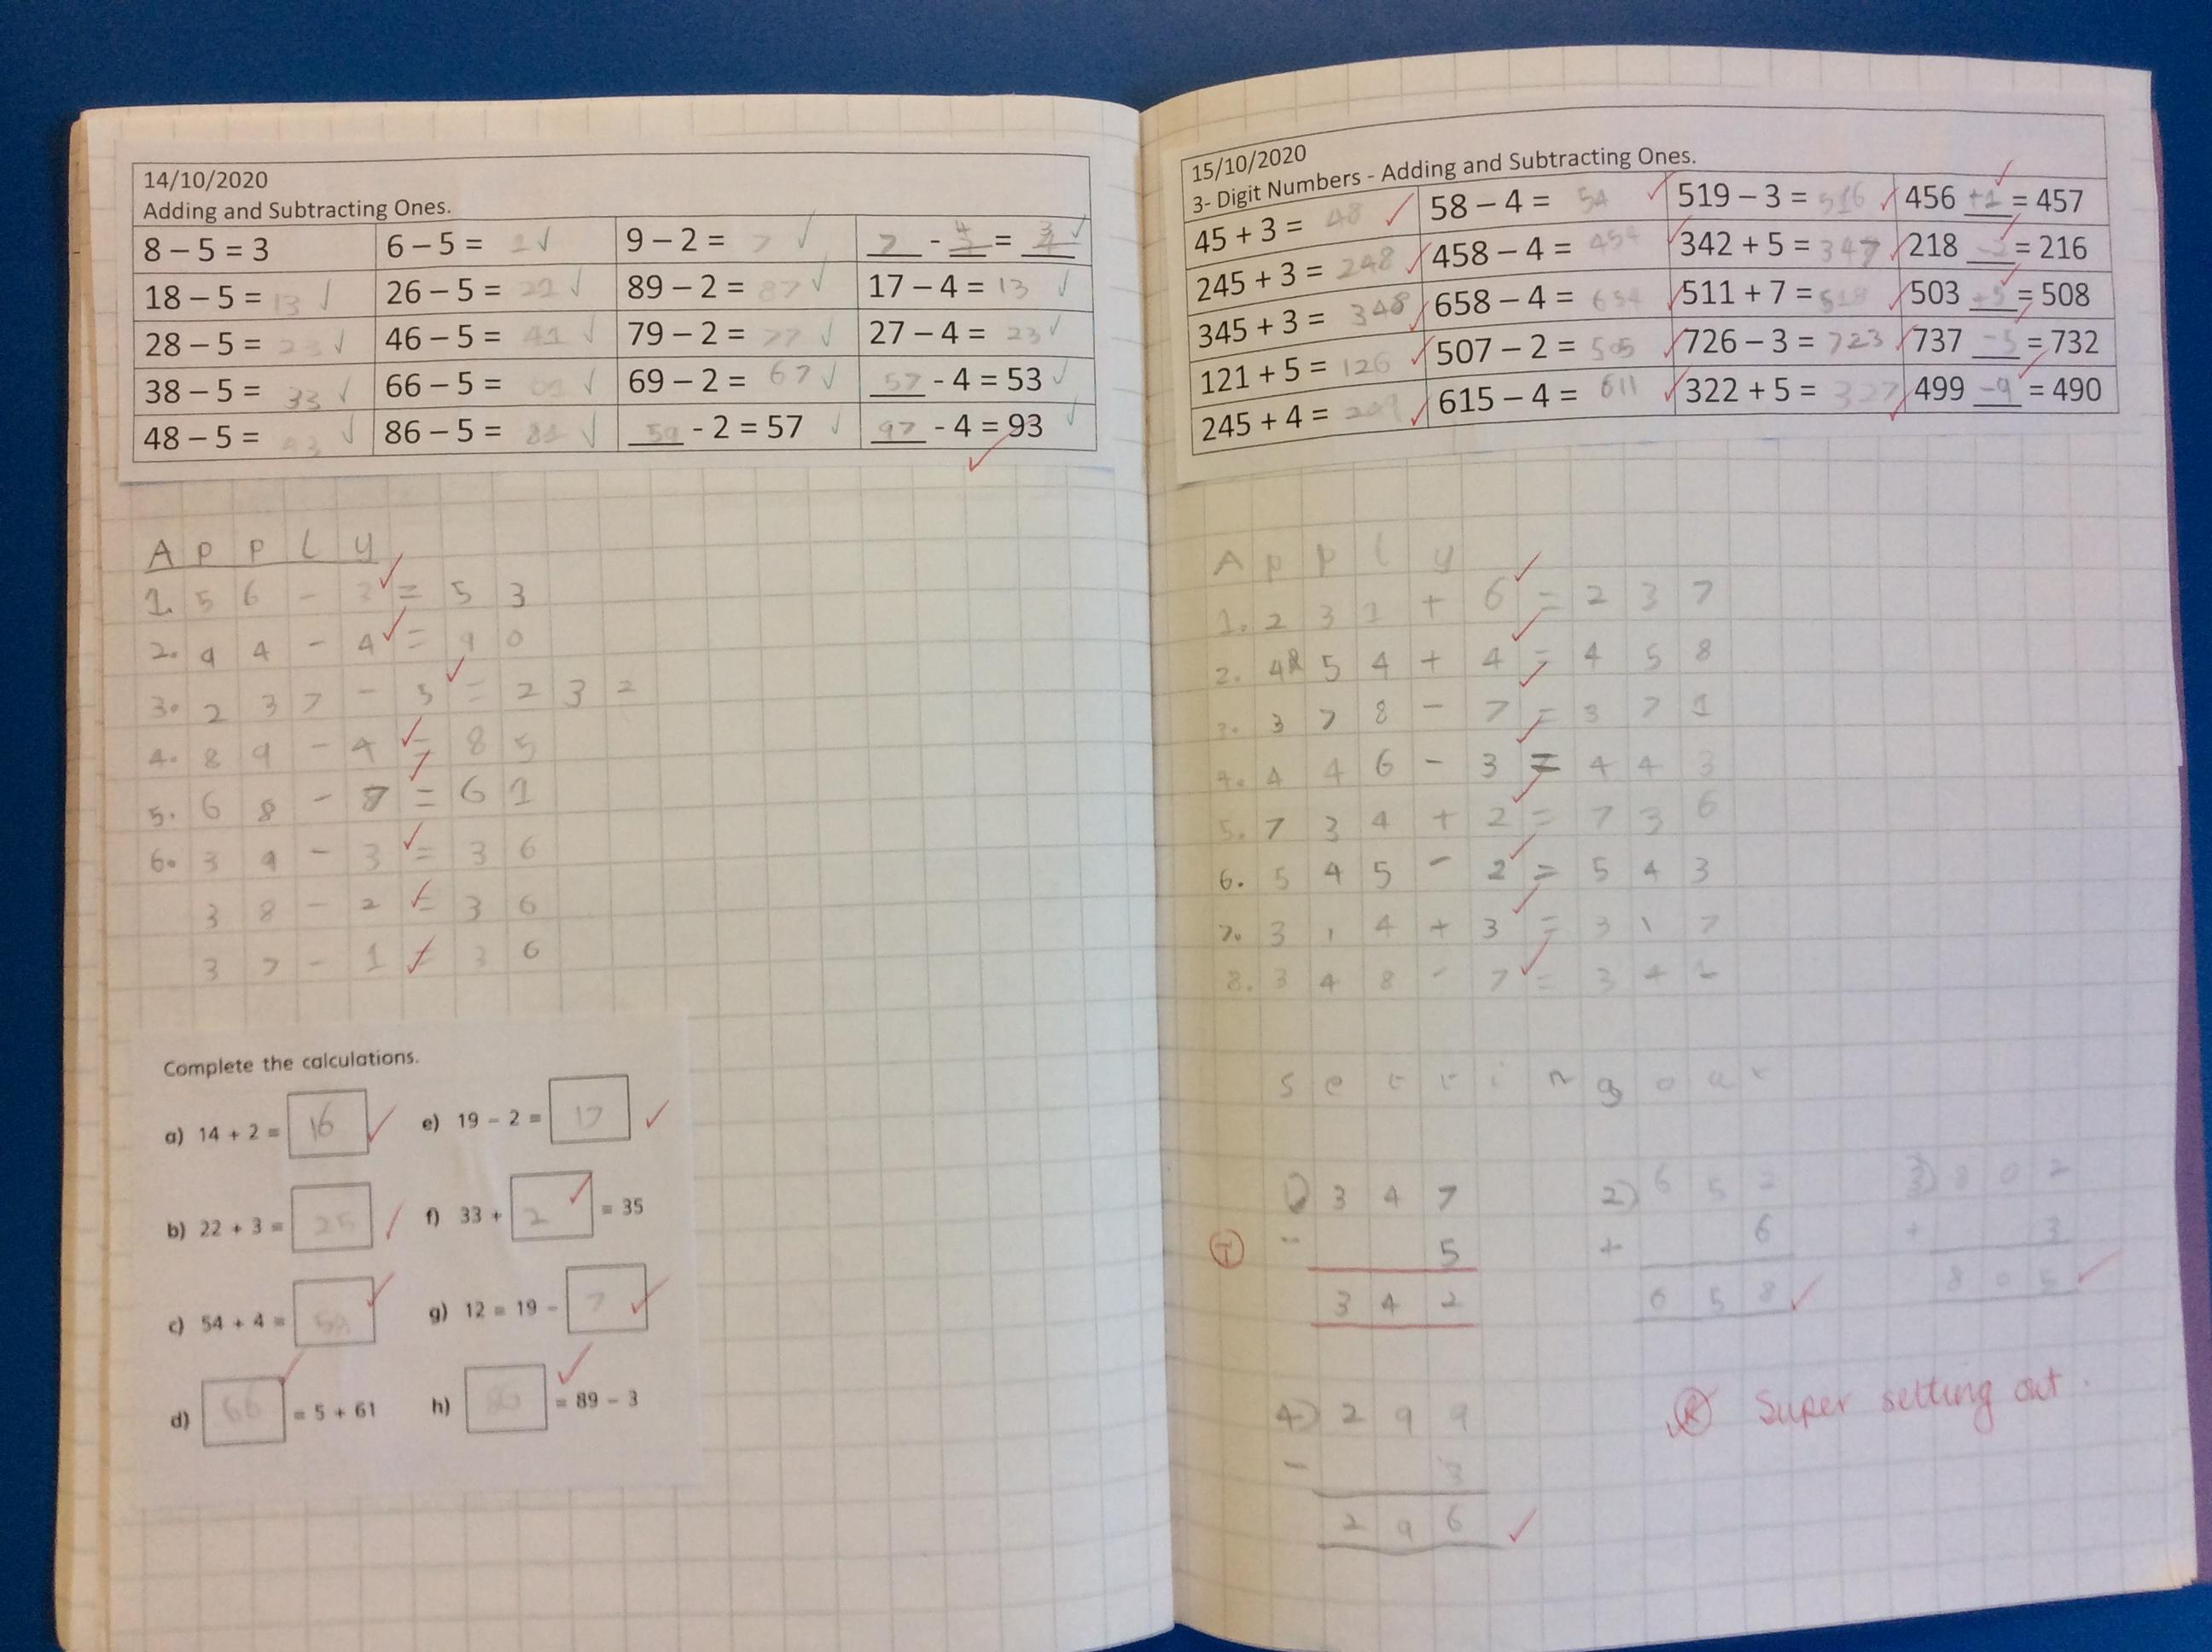 14/10/2020
Adding and Subtracting Ones.
8 – 5 = 3 6 – 5 = 1 9 – 2 = 7 7 - 4 = 3
18 – 5 = 13 26 – 5 = 21 89 – 2 = 87 17 – 4 = 13
28 – 5 = 23 46 – 5 = 41 79 – 2 = 77 27 – 4 = 23
38 – 5 = 33 66 – 5 = 61 69 – 2 = 67 57 - 4 = 53
48 – 5 = 43 86 – 5 = 81 59 - 2 = 57 97 - 4 = 93
Apply
1. 56 - 3 = 53
2. 94 - 4 = 90
3. 237 - 5 = 232
4. 89 - 4 = 85
5. 68 - 7 = 61
6. 39 - 3 = 36
38 - 2 = 36
37 - 1 = 36
Complete the calculations.
a) 14 + 2 = 16 e) 19 - 2 = 17
b) 22 + 3 = 25 f) 33 + 2 = 35
c) 54 + 4 = 58 g) 12 = 19 - 7
d) 66 = 5 + 61 h) 86 = 89 - 3
15/10/2020
3- Digit Numbers - Adding and Subtracting Ones.
45 + 3 = 48 58 – 4 = 54 519 – 3 = 516 456 +1 = 457
245 + 3 = 248 458 – 4 = 454 342 + 5 = 347 218 -2 = 216
345 + 3 = 348 658 – 4 = 654 511 + 7 = 518 503 +5 = 508
121 + 5 = 126 507 – 2 = 505 726 – 3 = 723 737 -5 = 732
245 + 4 = 249 615 – 4 = 611 322 + 5 = 327 499 -9 = 490
Apply
1. 231 + 6 = 237
2. 454 + 4 = 458
3. 378 - 7 = 371
4. 446 - 3 = 443
5. 734 + 2 = 736
6. 545 - 2 = 543
7. 314 + 3 = 317
8. 348 - 7 = 341
Setting out
1) 347 2) 652 3) 802
T - 5 + 6 + 3
342 658 805
4) 299
- 3
296
R Super setting out.